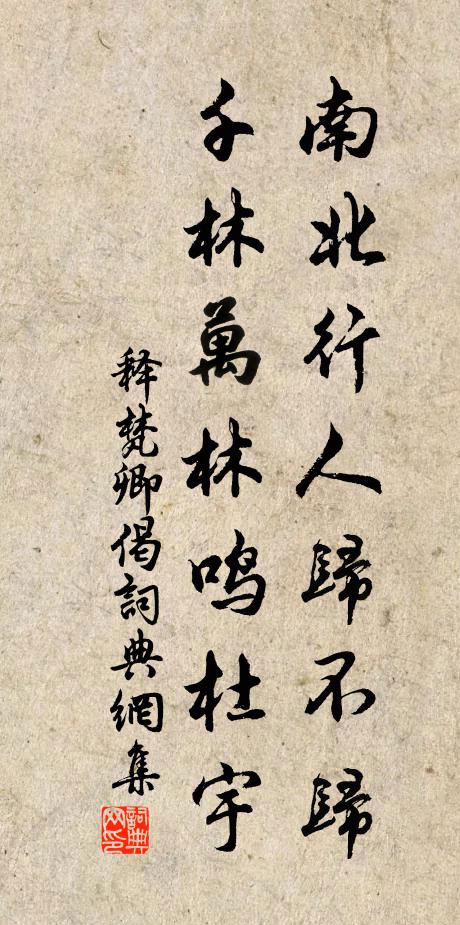 南北行人歸不歸
千林萬林鳴杜宇
释梵卿偈詞典網集
詞典网印